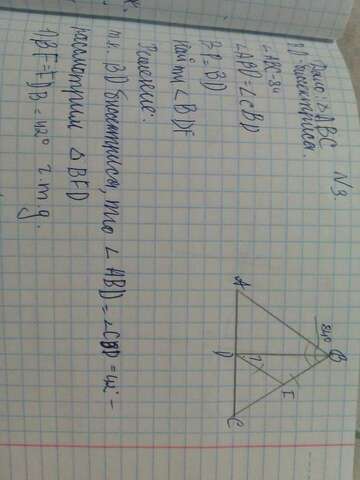 N3
Дано: △ABC
BD-биссектриса.
∠ABC=84
∠ABD=∠CBD
BF=BD
Найти ∠BDF
Решение:
т.к. BD биссектриса, то ∠ABD=∠CBD=42°-
рассмотрим △BFD
1) BF=FDB=42° г.т.д.
A
B
C
D
E
84°
?